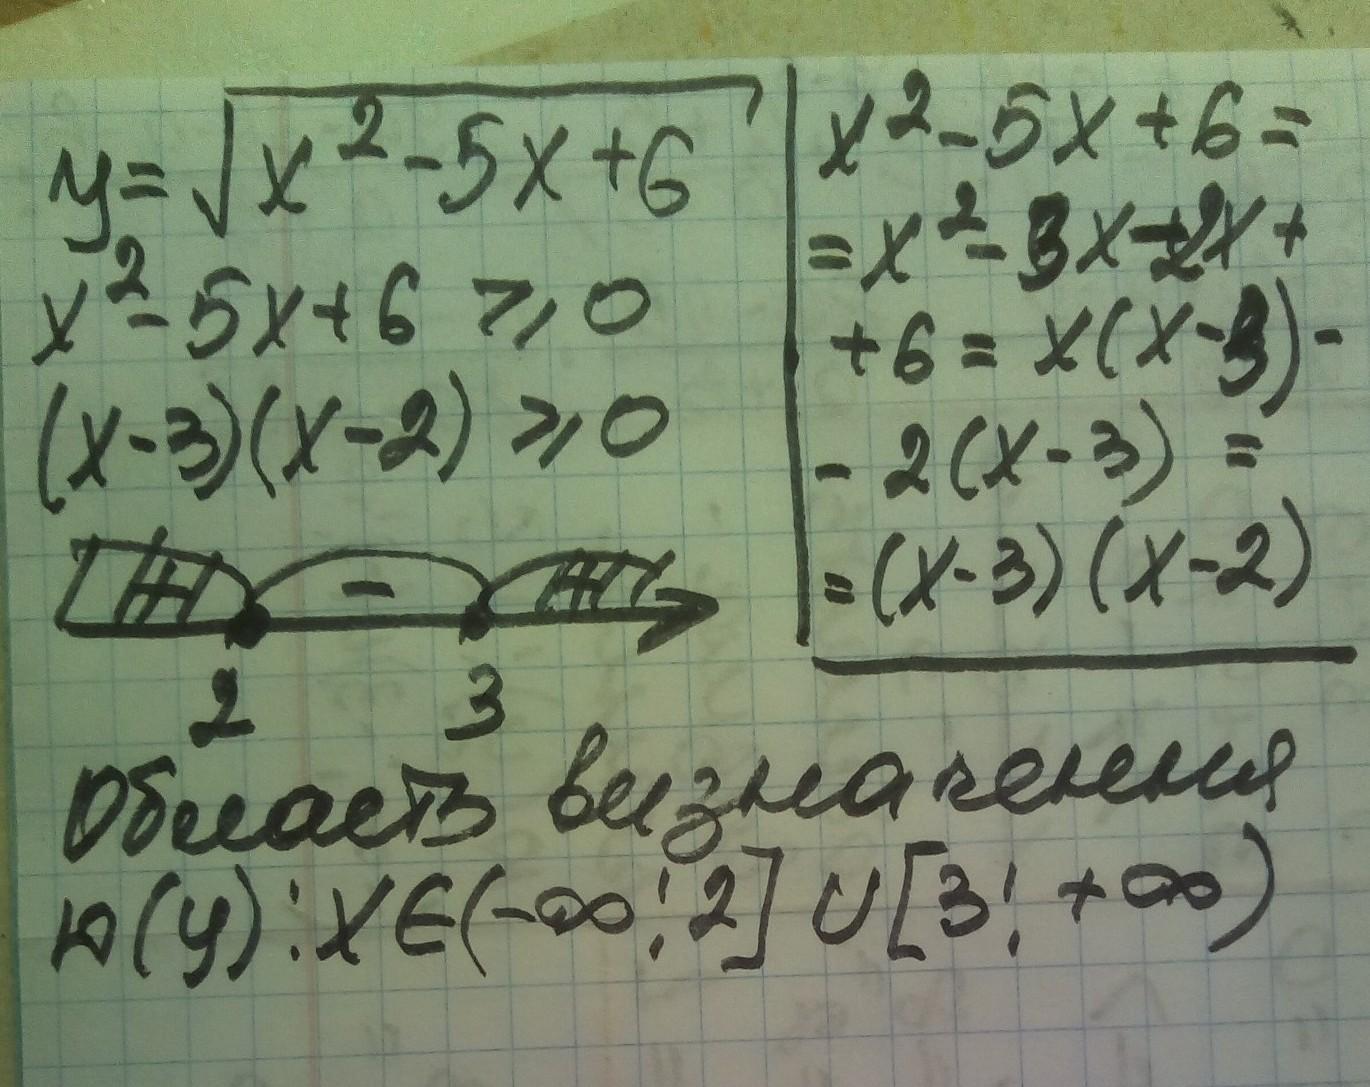 y=√x²-5x+6
x²-5x+6 ⩾ 0
(x-3)(x-2) ⩾ 0
+ - +
2 3
x²-5x+6=
=x²-3x-2x+
+6=x(x-3)-
-2(x-3)=
=(x-3)(x-2)
Область визначення
D(y):x∈(-∞;2]∪[3;+∞)